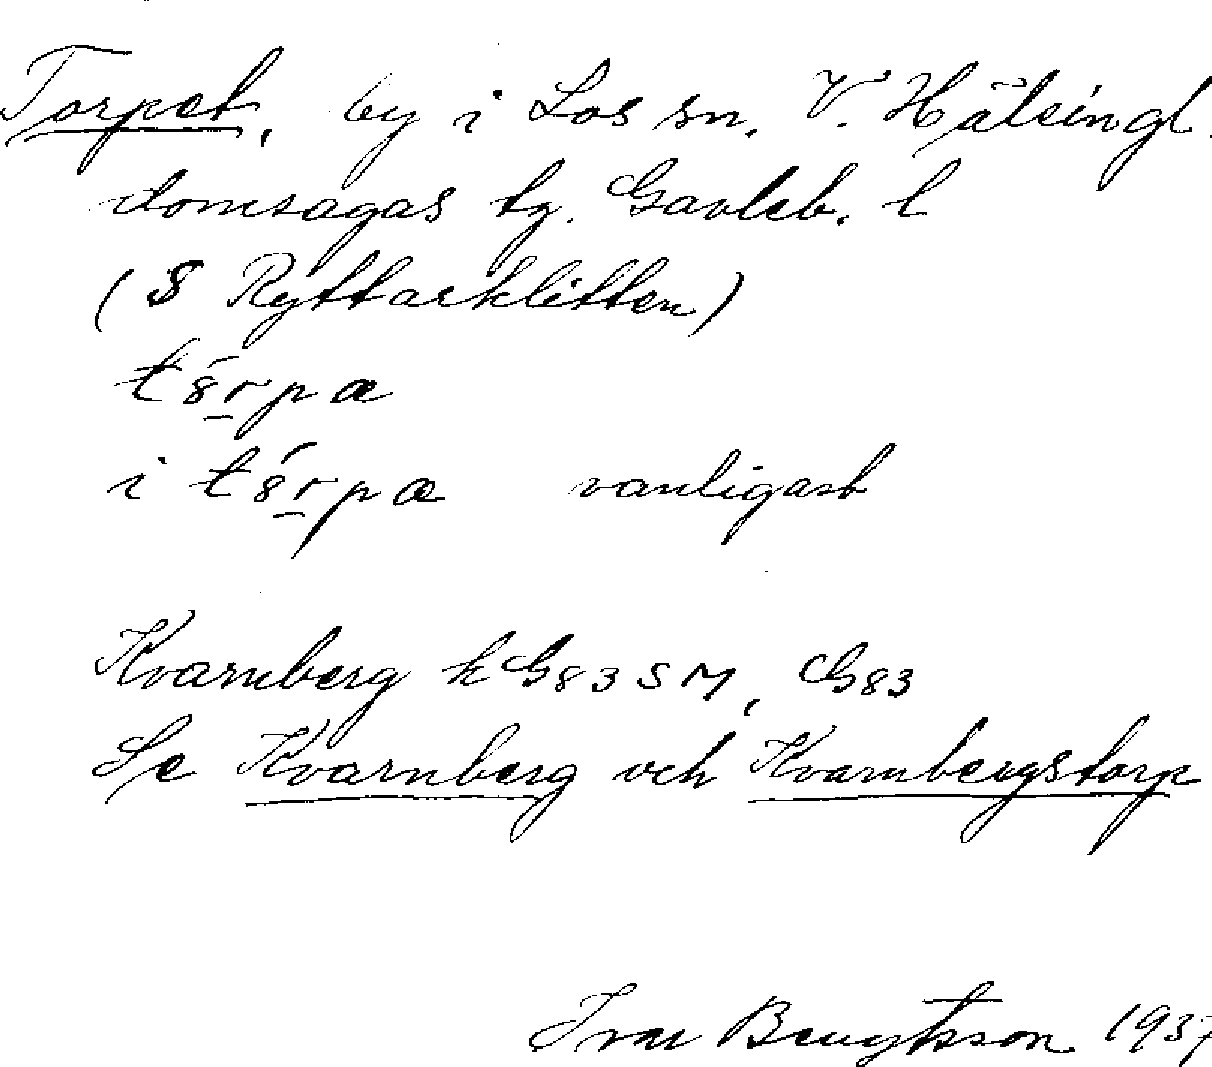 Torpet, by i Los sn. V. Hälsingl.
domsagas tg. Gävleb. l
(S Ryttarklitten)
i vanligast
Kvarnberg k G83SM, G83
Se Kvarnberg och Kvarnbergstorp
Ivar Bengtsson 1937